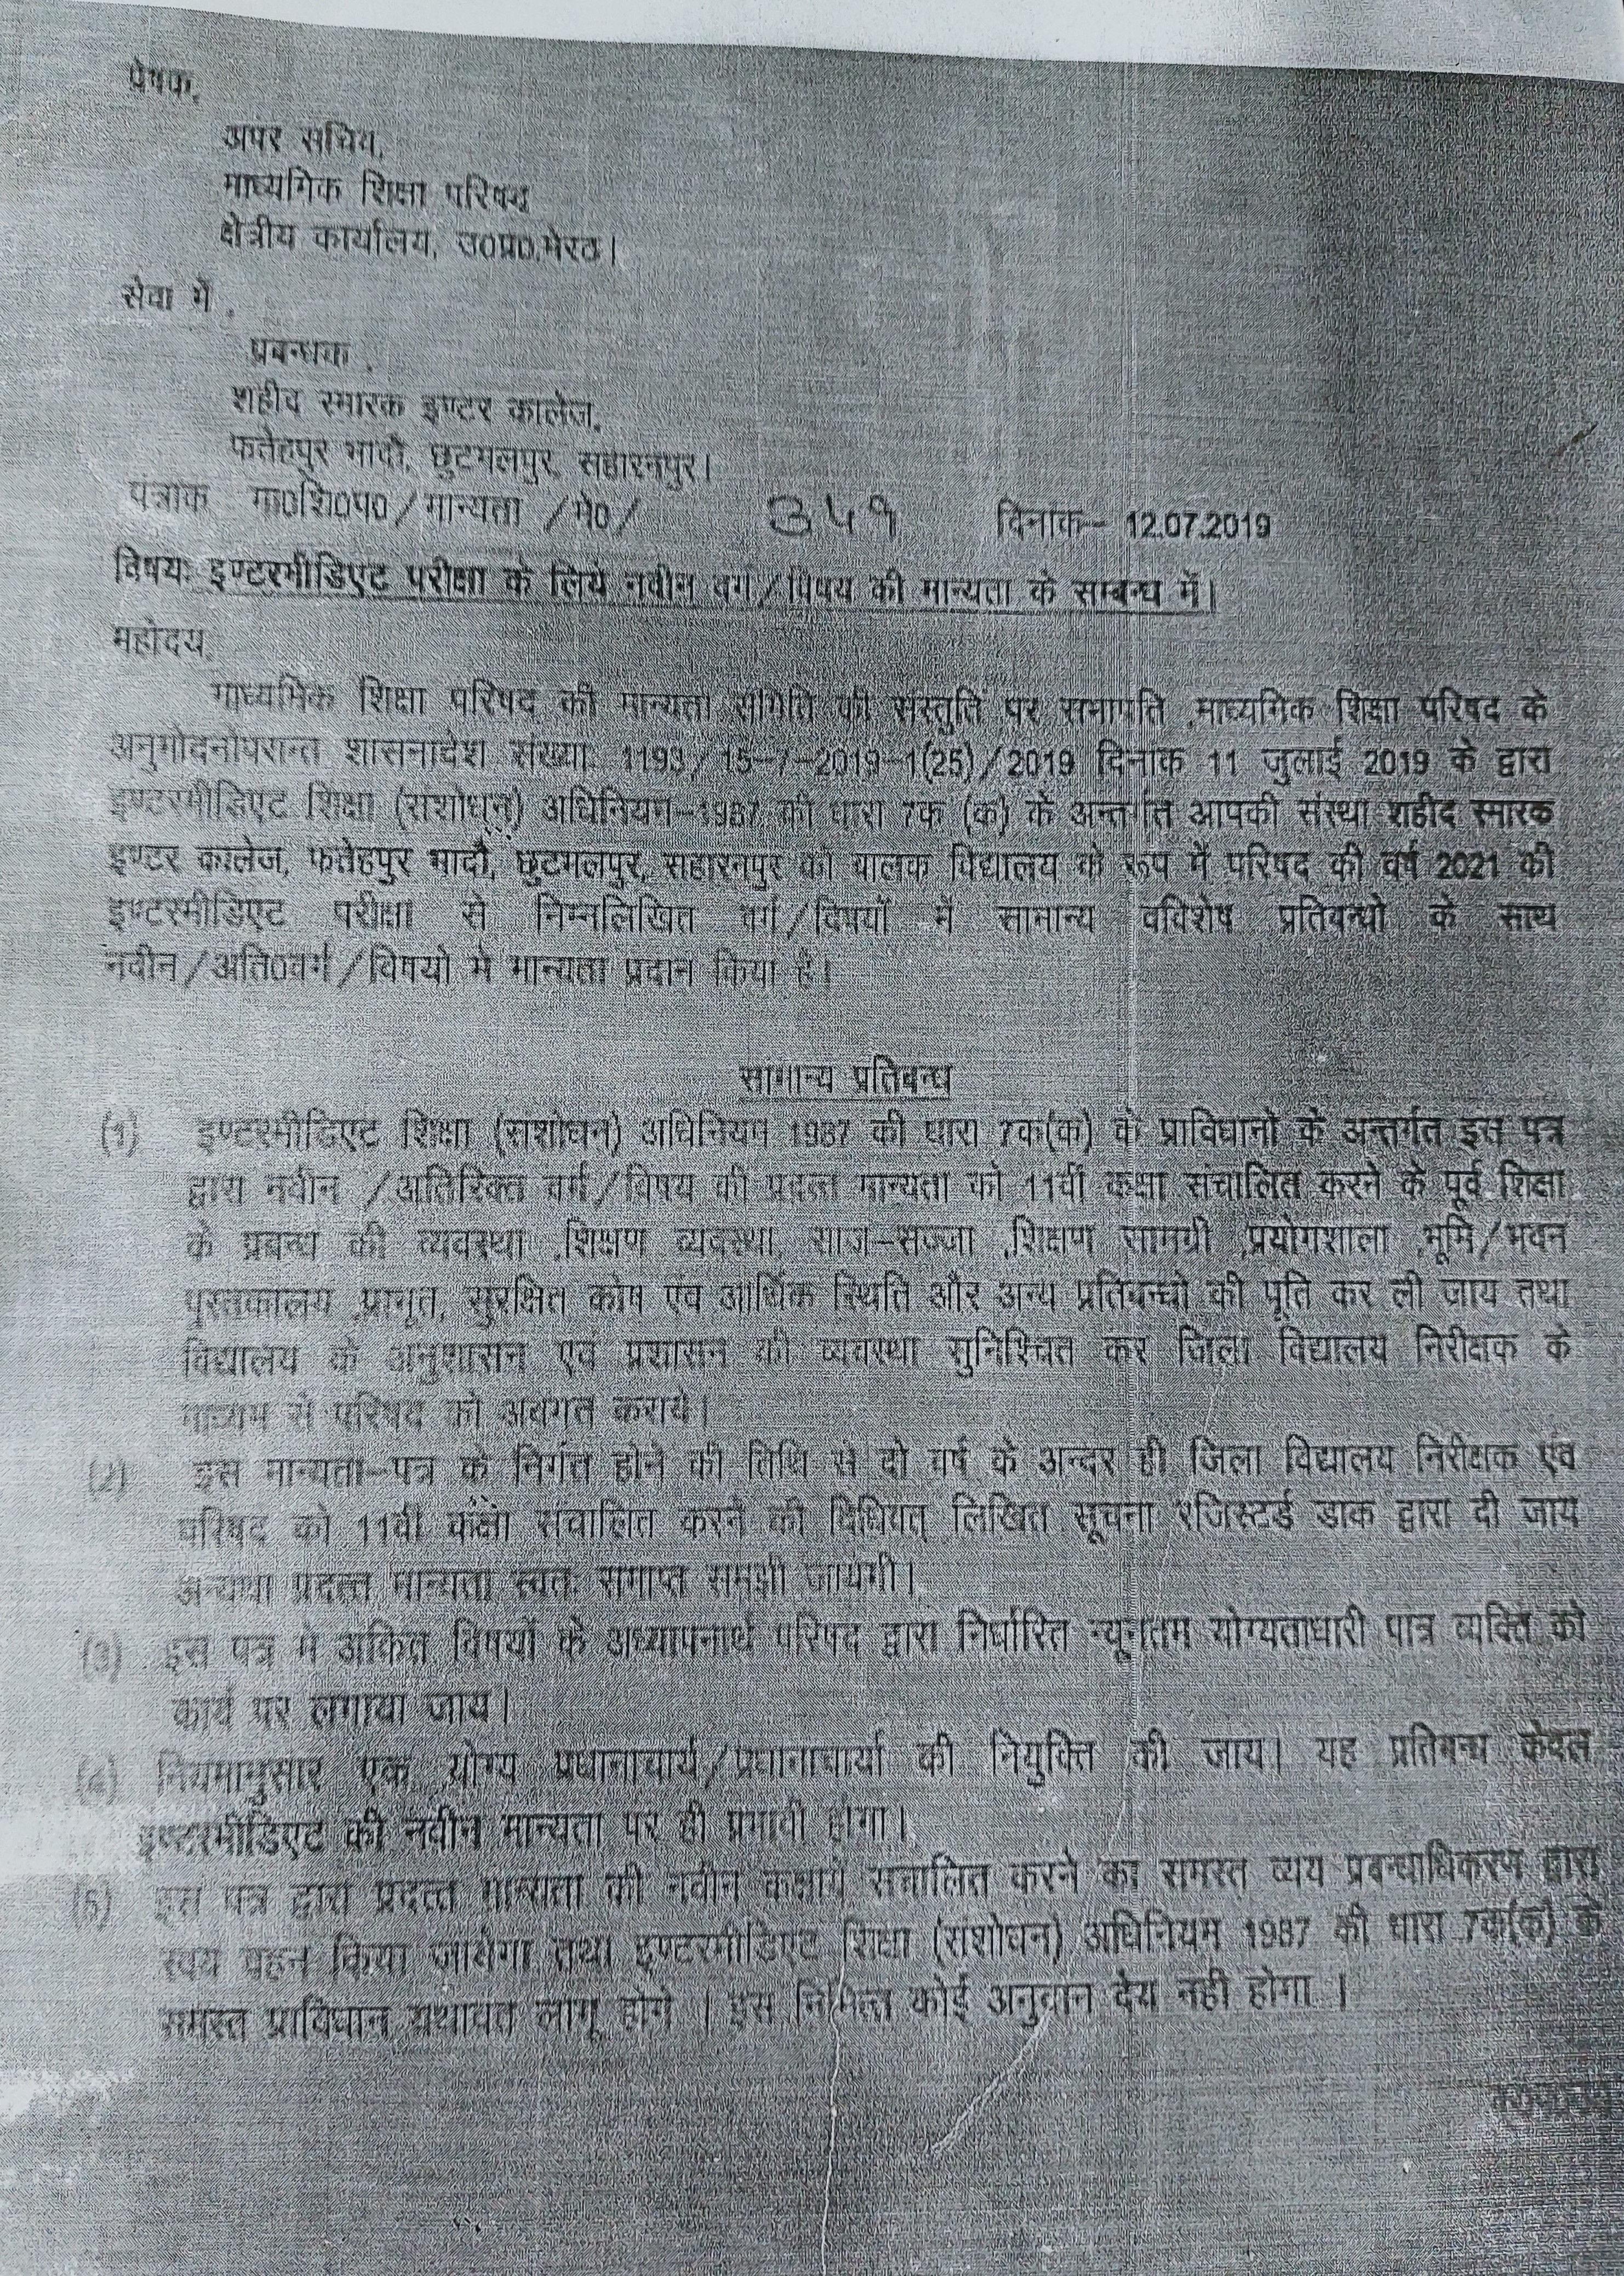 प्रेषक,
अपर सचिव,
माध्यमिक शिक्षा परिषद
क्षेत्रीय कार्यालय, उ0प्र0,मेरठ।
सेवा में ,
प्रबन्धक ,
शहीद स्मारक इण्टर कालेज,
फतेहपुर भादौ, छुटमलपुर, सहारनपुर।
पंत्रांक मा0शि0प0/मान्यता /मे0/ 349 दिनाक– 12.07.2019
विषयः इण्टरमीडिएट परीक्षा के लिये नवीन वर्ग/विषय की मान्यता के सम्बन्ध में।
महोदय,
माध्यमिक शिक्षा परिषद की मान्यता समिति की संस्तुति पर सभापति ,माध्यमिक शिक्षा परिषद के
अनुमोदनोपरान्त शासनादेश संख्या 1193/15–7–2019–1(25)/2019 दिनाक 11 जुलाई 2019 के द्वारा
इण्टरमीडिएट शिक्षा (संशोधन) अधिनियम–1987 की धारा 7क (क) के अन्तर्गत आपकी संस्था शहीद स्मारक
इण्टर कालेज, फतेहपुर भादौ, छुटमलपुर, सहारनपुर को बालक विद्यालय के रूप में परिषद की वर्ष 2021 की
इण्टरमीडिएट परीक्षा से निम्नलिखित वर्ग/विषयों में सामान्य वविशेष प्रतिबन्धो के साथ
नवीन/अति0वर्ग/विषयो मे मान्यता प्रदान किया है।
सामान्य प्रतिबन्ध
(1) इण्टरमीडिएट शिक्षा (संशोधन) अधिनियम 1987 की धारा 7क(क) के प्राविधानो के अन्तर्गत इस पत्र
द्वारा नवीन /अतिरिक्त वर्ग/विषय की प्रदत्त मान्यता को 11वीं कक्षा संचालित करने के पूर्व शिक्षा
के प्रबन्ध की व्यवस्था ,शिक्षण व्यवस्था, साज–सज्जा ,शिक्षण सामग्री ,प्रयोगशाला ,भूमि/भवन
पुस्तकालय ,प्राभूत, सुरक्षित कोष एंव आर्थिक स्थिति और अन्य प्रतिबन्धो की पूति कर ली जाय तथा
विद्यालय के अनुशासन एवं प्रशासन की व्यवस्था सुनिश्चित कर जिला विद्यालय निरीक्षक के
माध्यम से परिषद को अवगत कराये।
(2) इस मान्यता–पत्र के निर्गत होने की तिथि से दो वर्ष के अन्दर ही जिला विद्यालय निरीक्षक एंव
परिषद को 11वी कक्षा संचालित करने की विधिवत् लिखित सूचना रजिस्टर्ड डाक द्वारा दी जाय
अन्यथा प्रदत्त मान्यता स्वतः समाप्त समझी जायेगी।
(3) इस पत्र मे अंकित विषयों के अध्यापनार्थ परिषद द्वारा निर्धारित न्यूनतम योग्यताधारी पात्र व्यक्ति को
कार्य पर लगाया जाय।
(4) नियमानुसार एक योग्य प्रधानाचार्य/प्रधानाचार्या की नियुक्ति की जाय। यह प्रतिबन्ध केवल
इण्टरमीडिएट की नवीन मान्यता पर ही प्रभावी होगा।
(5) इस पत्र द्वारा प्रदत्त मान्यता की नवीन कक्षायें संचालित करने का समस्त व्यय प्रबन्धाधिकरण द्वारा
स्वय वहन किया जायेगा तथा इण्टरमीडिएट शिक्षा (संशोधन) अधिनियम 1987 की धारा 7क(क) के
समस्त प्राविधान यथावत लागू होगे । इस निमित्त कोई अनुदान देय नही होगा ।